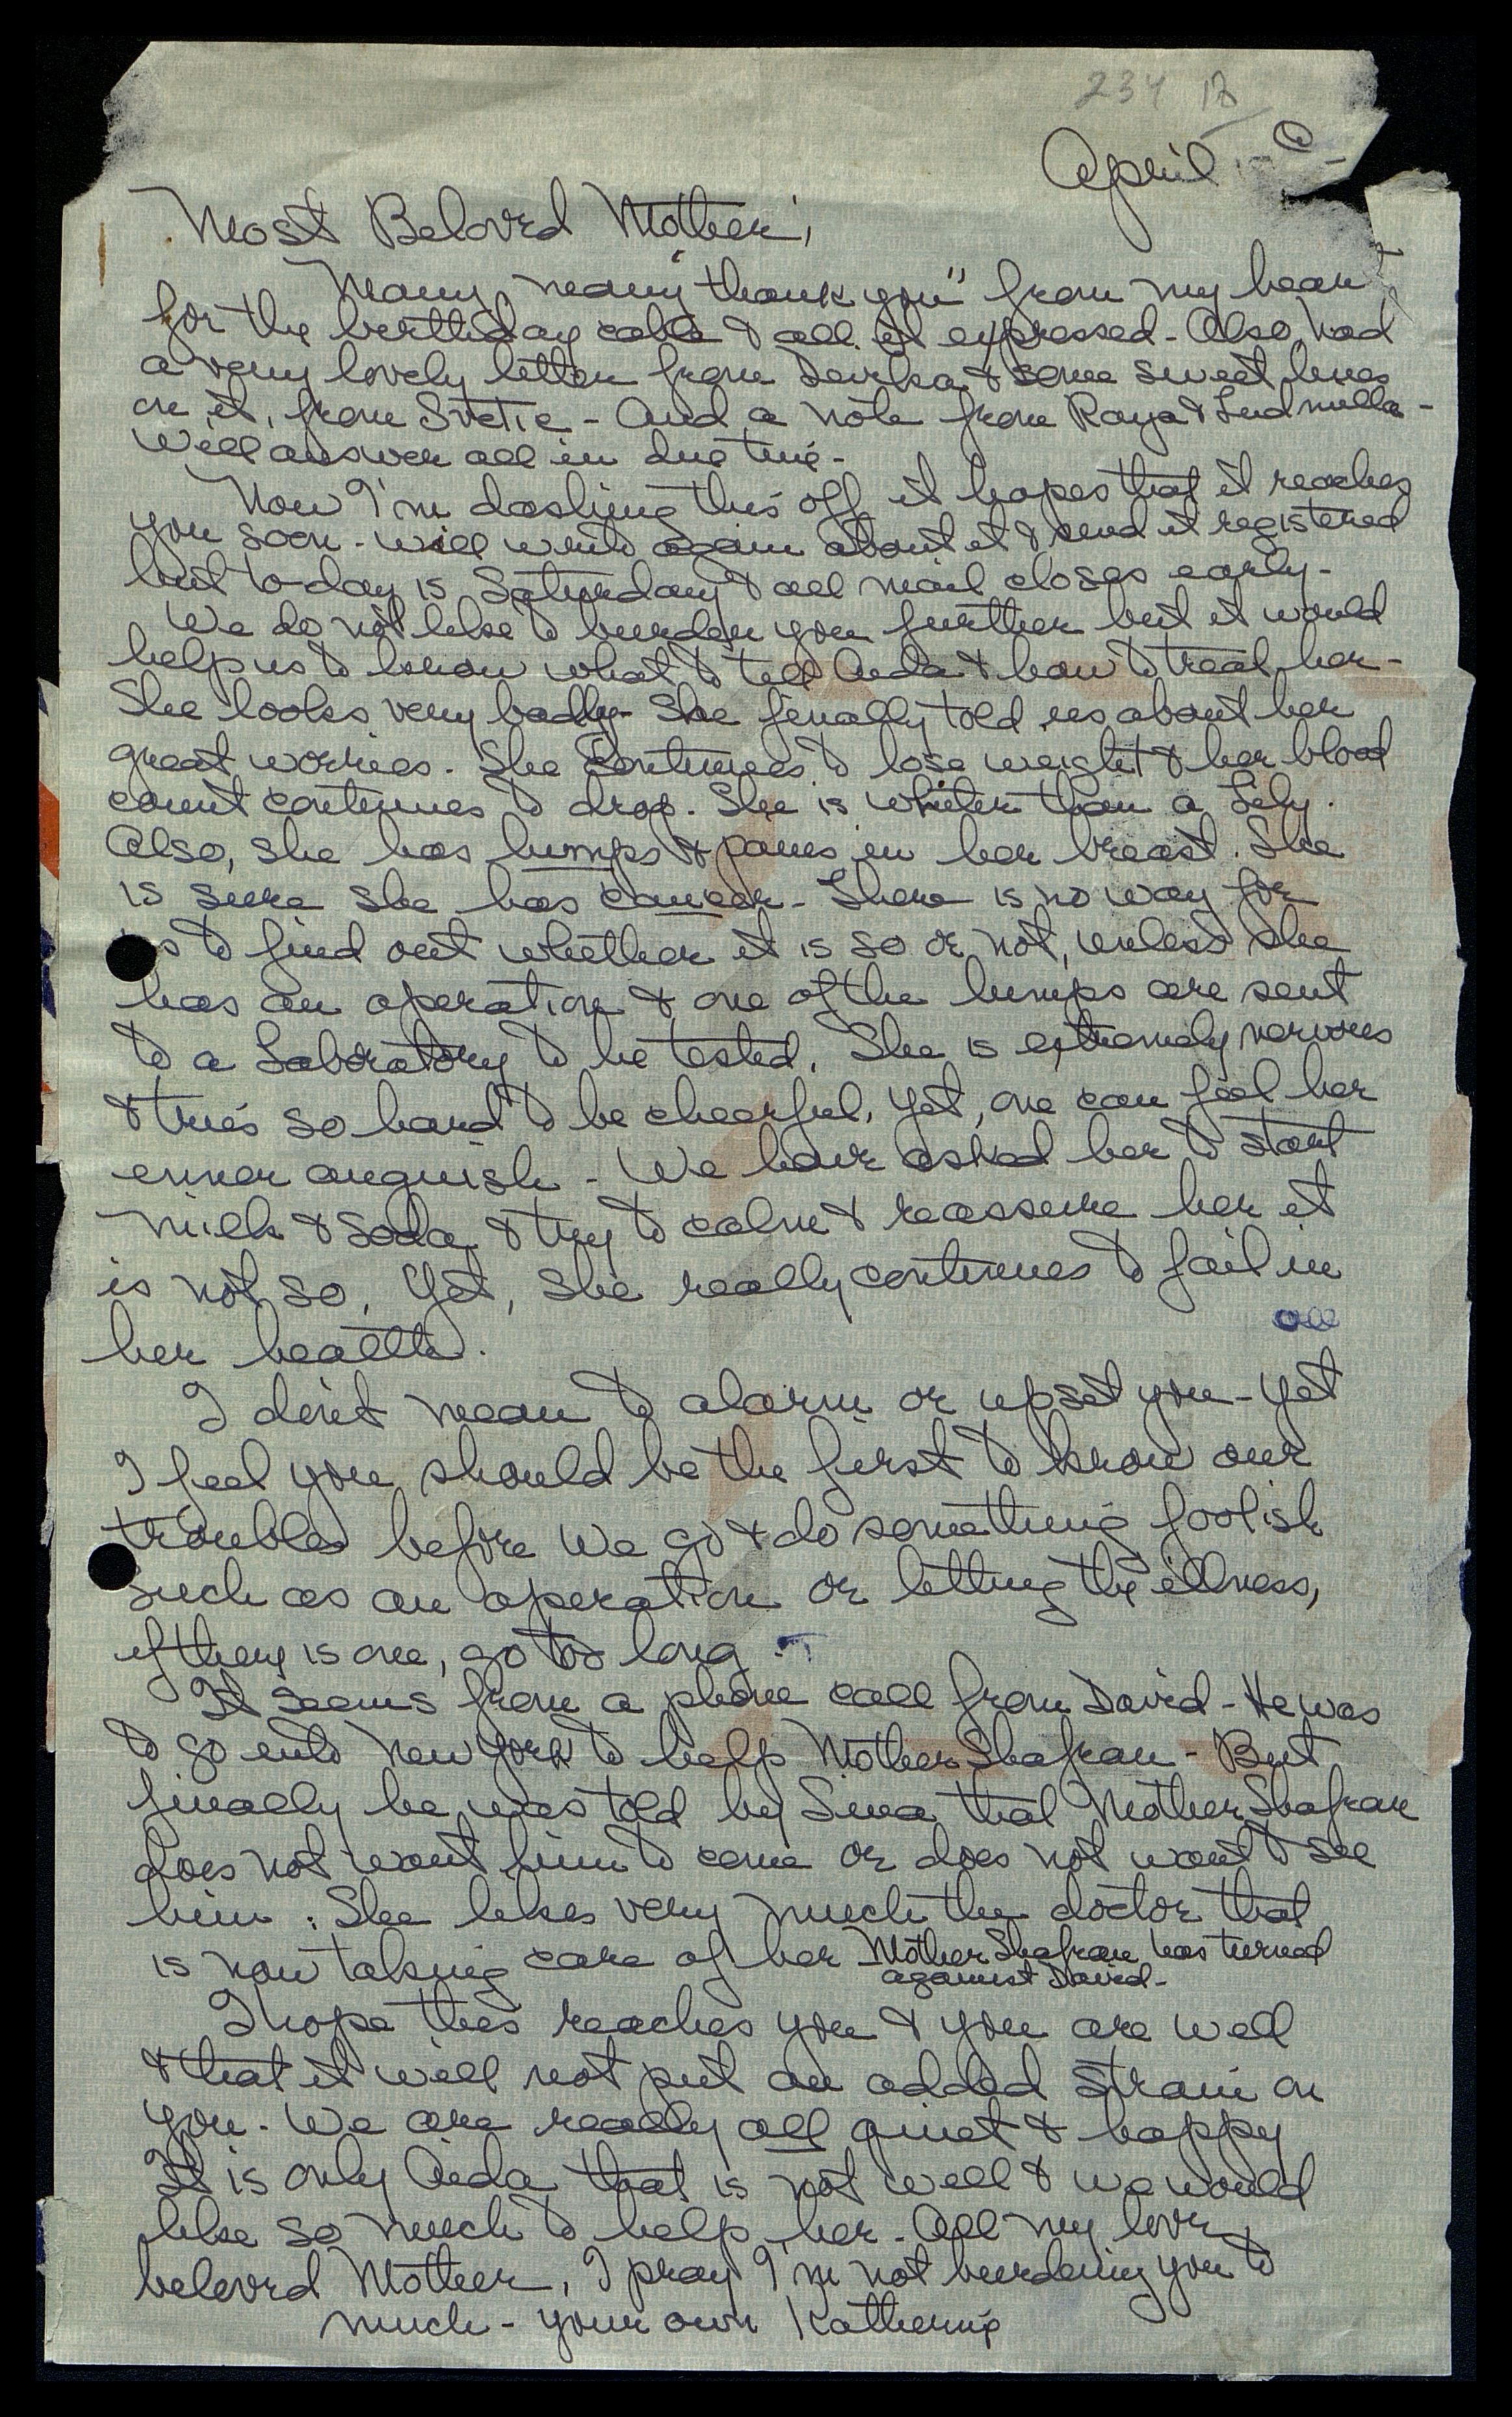 234 18
April
Most Beloved Mother,
Many, many "thank you" from my heart
for the birthday cable & all it expressed - Also had
a very lovely letter from Devika & some sweet lines
on it, from Svetie - And a note from Raya & Ludmilla -
Will answer all in due time -
Now I'm dashing this off it hopes that it reaches
you soon - Will write again about it & send it registered
but to-day is Saturday & all mail closes early -
We do not like to burden you further but it would
help us to know what to tell Aida & how to treat her -
She looks very badly - She finally told us about her
great worries. She continues to lose weight & her blood
count continues to drop. She is whiter than a Lily.
Also, she has lumps & pains in her breast. She
is sure she has cancer - There is no way for
us to find out whether it is so or not, unless she
has an operation & one of the lumps are sent
to a Laboratory to be tested. She is extremely nervous
& tries so hard to be cheerful, yet, one can feel her
inner anguish - We have asked her to start
milk & soda & try to calm & reassure her it
is not so. Yet, she really continues to fail in
her health.
I don't mean to alarm or upset you - yet
I feel you should be the first to know our
troubles before we go & do something foolish
such as an operation or letting the illness,
if there is one, go too long.
It seems from a phone call from David - He was
to go into New York to help Mother Shafran - But
finally he was told by Sina that Mother Shafran
does not want him to come or does not want to see
him: She likes very much the doctor that
is now taking care of her Mother Shafran has turned
against David -
I hope this reaches you & you are well
& that it will not put an added strain on
you - We are really all quiet & happy
It is only Aida that is not well & we would
like so much to help her - All my love,
beloved Mother, I pray I'm not burdening you to
much - your own Katherine